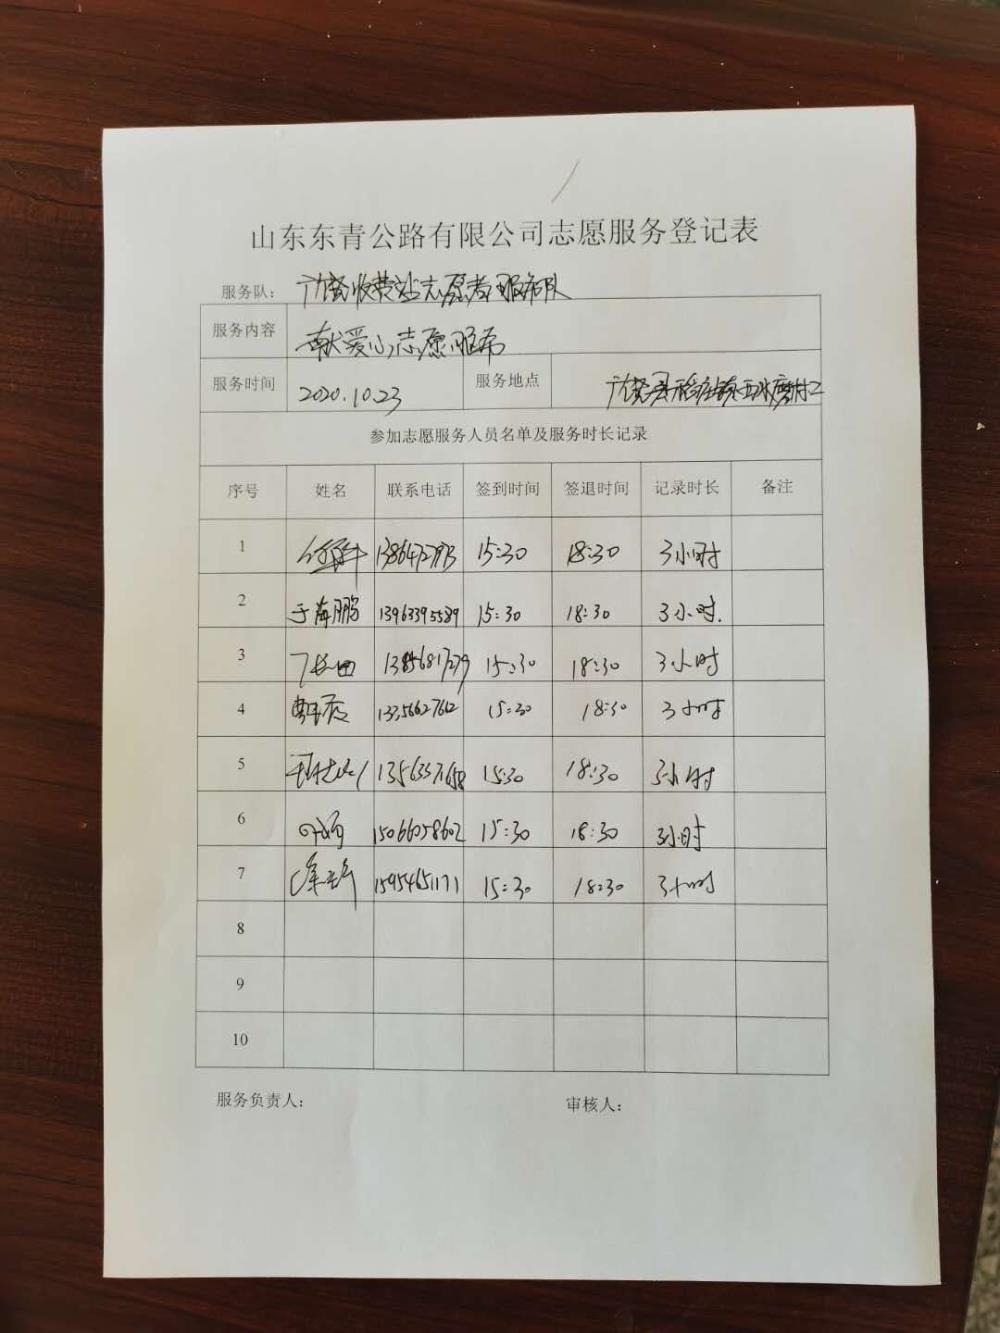 山东东青公路有限公司志愿服务登记表
服务队： 广饶收费站志愿者服务队
服务内容 献爱心志愿服务
服务时间 2020.10.23 服务地点 广饶县稻庄镇西水磨村
参加志愿服务人员名单及服务时长记录
序号 姓名 联系电话 签到时间 签退时间 记录时长 备注
1 15:30 18:30 3小时
2 于海鹏 13963395589 15:30 18:30 3小时.
3 15:30 18:30 3小时
4 15:30 18:30 3小时
5 15:30 18:30 3小时
6 15066058602 15:30 18:30 3小时
7 15954651171 15:30 18:30 3小时
8
9
10
服务负责人： 审核人：